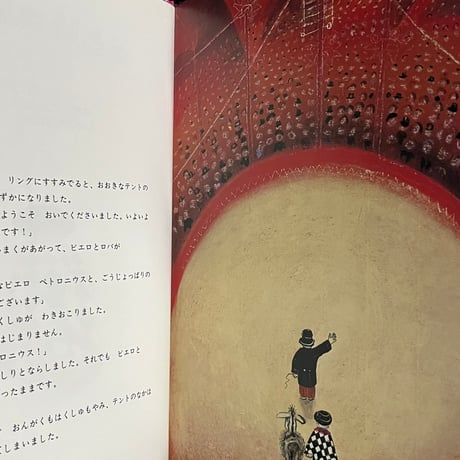 リングにすすみでると、おおきなテントの
ずかになりました。
ようこそ おいでくださいました。いよいよ
です！」
まくがあがって、ピエロとロバが
なピエロ ペトロニウスと、ごうじょっぱりの
ございます」
くしゅが わきおこりました。
はじまりません。
ロニウス！」
しりとならしました。それでも ピエロと
ったままです。
おんがくもはくしゅもやみ、テントのなかは
てしまいました。